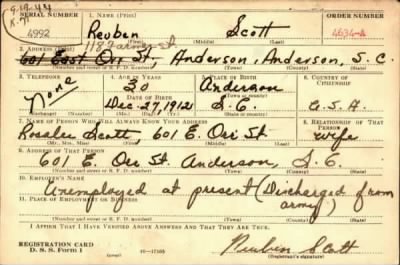 9-19-44
K-71
SERIAL NUMBER 1. NAME (Print) ORDER NUMBER
4992 Reuben Scott 4634-A
(First) (Middle) (Last)
118
2. ADDRESS (Print)
601 East Orr St, Anderson, Anderson, S. C.
(Number and street or R. F. D. number) (Town) (County) (State)
3. TELEPHONE 4. AGE IN YEARS 5. PLACE OF BIRTH 6. COUNTRY OF CITIZENSHIP
None 30 Anderson
DATE OF BIRTH (Town or county)
Dec. 27, 1912 S.C. U.S.A.
(Exchange) (Number) (Mo.) (Day) (Yr.) (State or country)
7. NAME OF PERSON WHO WILL ALWAYS KNOW YOUR ADDRESS 8. RELATIONSHIP OF THAT PERSON
Rosalee Scott, 601 E. Orr St wife
(Mr., Mrs., Miss) (First) (Middle) (Last)
9. ADDRESS OF THAT PERSON
601 E. Orr St. Anderson, S.C.
(Number and street or R. F. D. number) (Town) (County) (State)
10. EMPLOYER'S NAME
Unemployed at present (Discharged from
11. PLACE OF EMPLOYMENT OR BUSINESS army)
(Number and street or R. F. D. number) (Town) (County) (State)
I AFFIRM THAT I HAVE VERIFIED ABOVE ANSWERS AND THAT THEY ARE TRUE.
REGISTRATION CARD
D. S. S. Form 1 16-17105 Reuben Scott